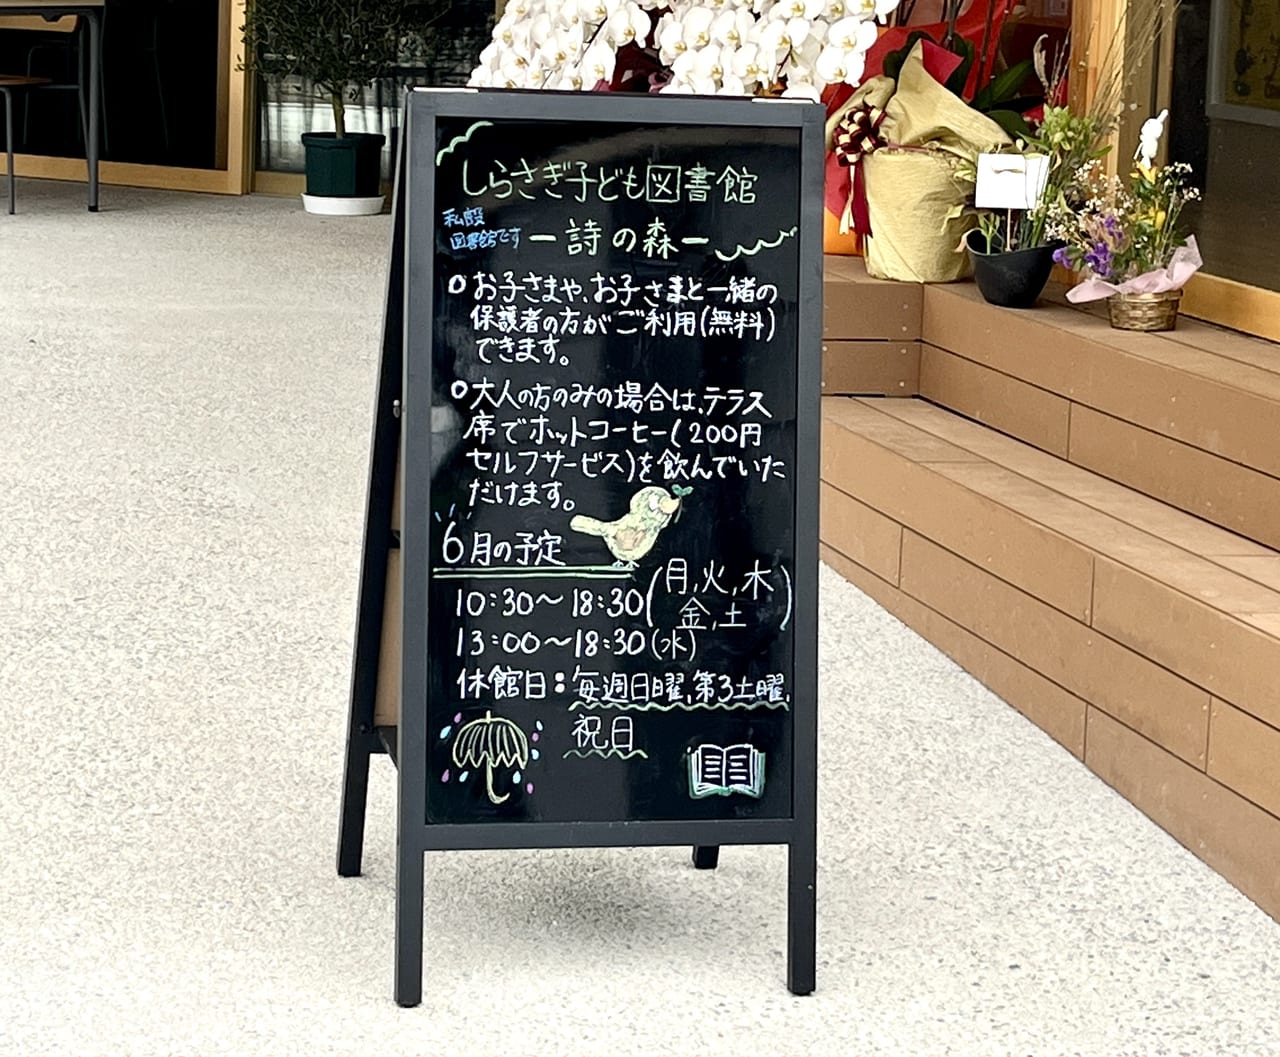 しらさぎ子ども図書館
私設
図書館です
ー詩の森ー
○お子さまや、お子さまと一緒の
保護者の方がご利用(無料)
できます。
○大人の方のみの場合は、テラス
席でホットコーヒー(200円
セルフサービス)を飲んでいた
だけます。
6月の予定
10:30〜18:30(月,火,木
金,土)
13:00〜18:30(水)
休館日:毎週日曜、第3土曜、
祝日